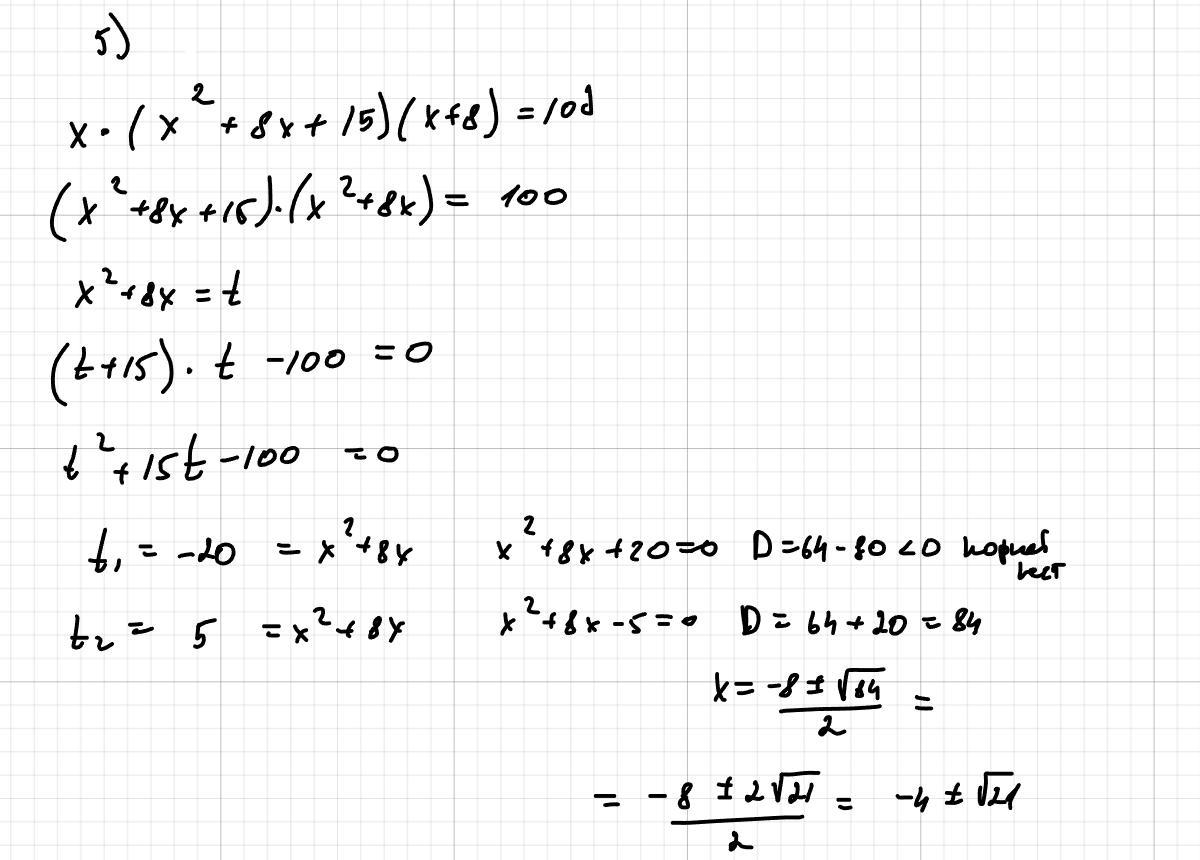 5)
x · (x² + 8x + 15)(x+8) = 100
(x² + 8x + 15) · (x² + 8x) = 100
x² + 8x = t
(t+15) · t - 100 = 0
t² + 15t - 100 = 0
t₁ = -20 = x² + 8x x² + 8x + 20 = 0 D = 64 - 80 < 0 корней
t₂ = 5 = x² + 8x x² + 8x - 5 = 0 D = 64 + 20 = 84
x = (-8 ± √84)/2 =
= (-8 ± 2√21)/2 = -4 ± √21